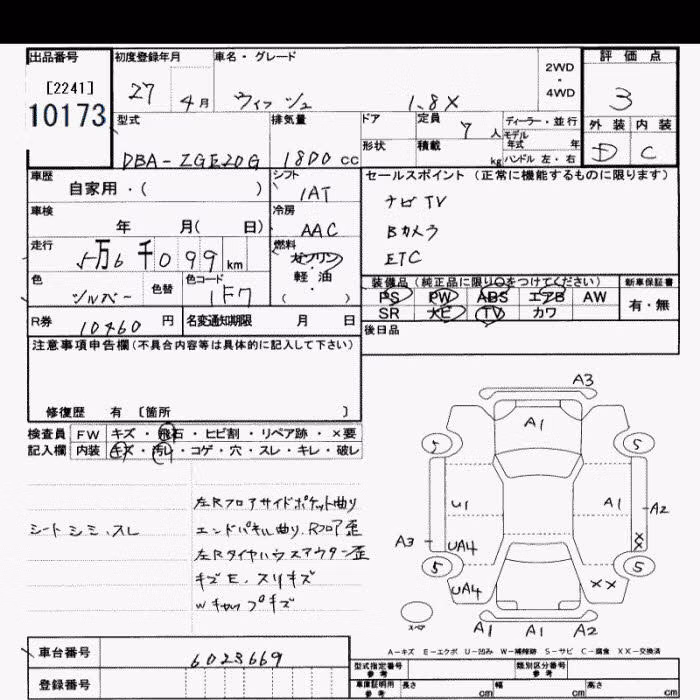 出品番号 初度登録年月 車名・グレード 2WD・4WD 評価点
[2241] 27 4月 ウィッシュ 1.8X 3
10173 型式 排気量 ドア 定員 7人 ディーラー・並行 外装 内装
モデル年式 年
DBA-ZGE20G 1800cc 形状 積載 kg ハンドル 左・右 D C
車歴 シフト セールスポイント(正常に機能するものに限ります)
自家用・( ) IAT ナビTV
車検 冷房 Bカメラ
年 月( 日) AAC ETC
走行 燃料
5万6千099km ガソリン・軽油
色 色替 色コード ( ) 装備品(純正品に限り○をつけてください) 新車保証書
シルバー 1F7 PS PW ABS エアB AW 有・無
R券 10460円 名変通知期限 月 日 SR ナビ TV カワ
注意事項申告欄(不具合内容等は具体的に記入して下さい) 後日品
修復歴 有 〔箇所 〕
検査員 FW キズ・飛石・ヒビ割・リペア跡・×要
記入欄 内装 キズ・汚レ・コゲ・穴・スレ・キレ・破レ
左Rフロアサイドポケット曲り
シートシミ、スレ エンドパネル曲り、Rフロア歪
左Rタイヤハウスアウター歪
キズE、スリキズ
A3
A1
5 5
U1 A1 A2
A3 UA4 XX
5 5
UA4 XX
スペア A1 A1 A2
A-キズ E-エクボ U-凹み W-補修跡 S-サビ C-腐食 XX-交換済
車台番号 6023669 型式指定番号 参考 類別区分番号 参考
登録番号 車庫証明用 参考 長さ cm 幅 cm 高さ cm